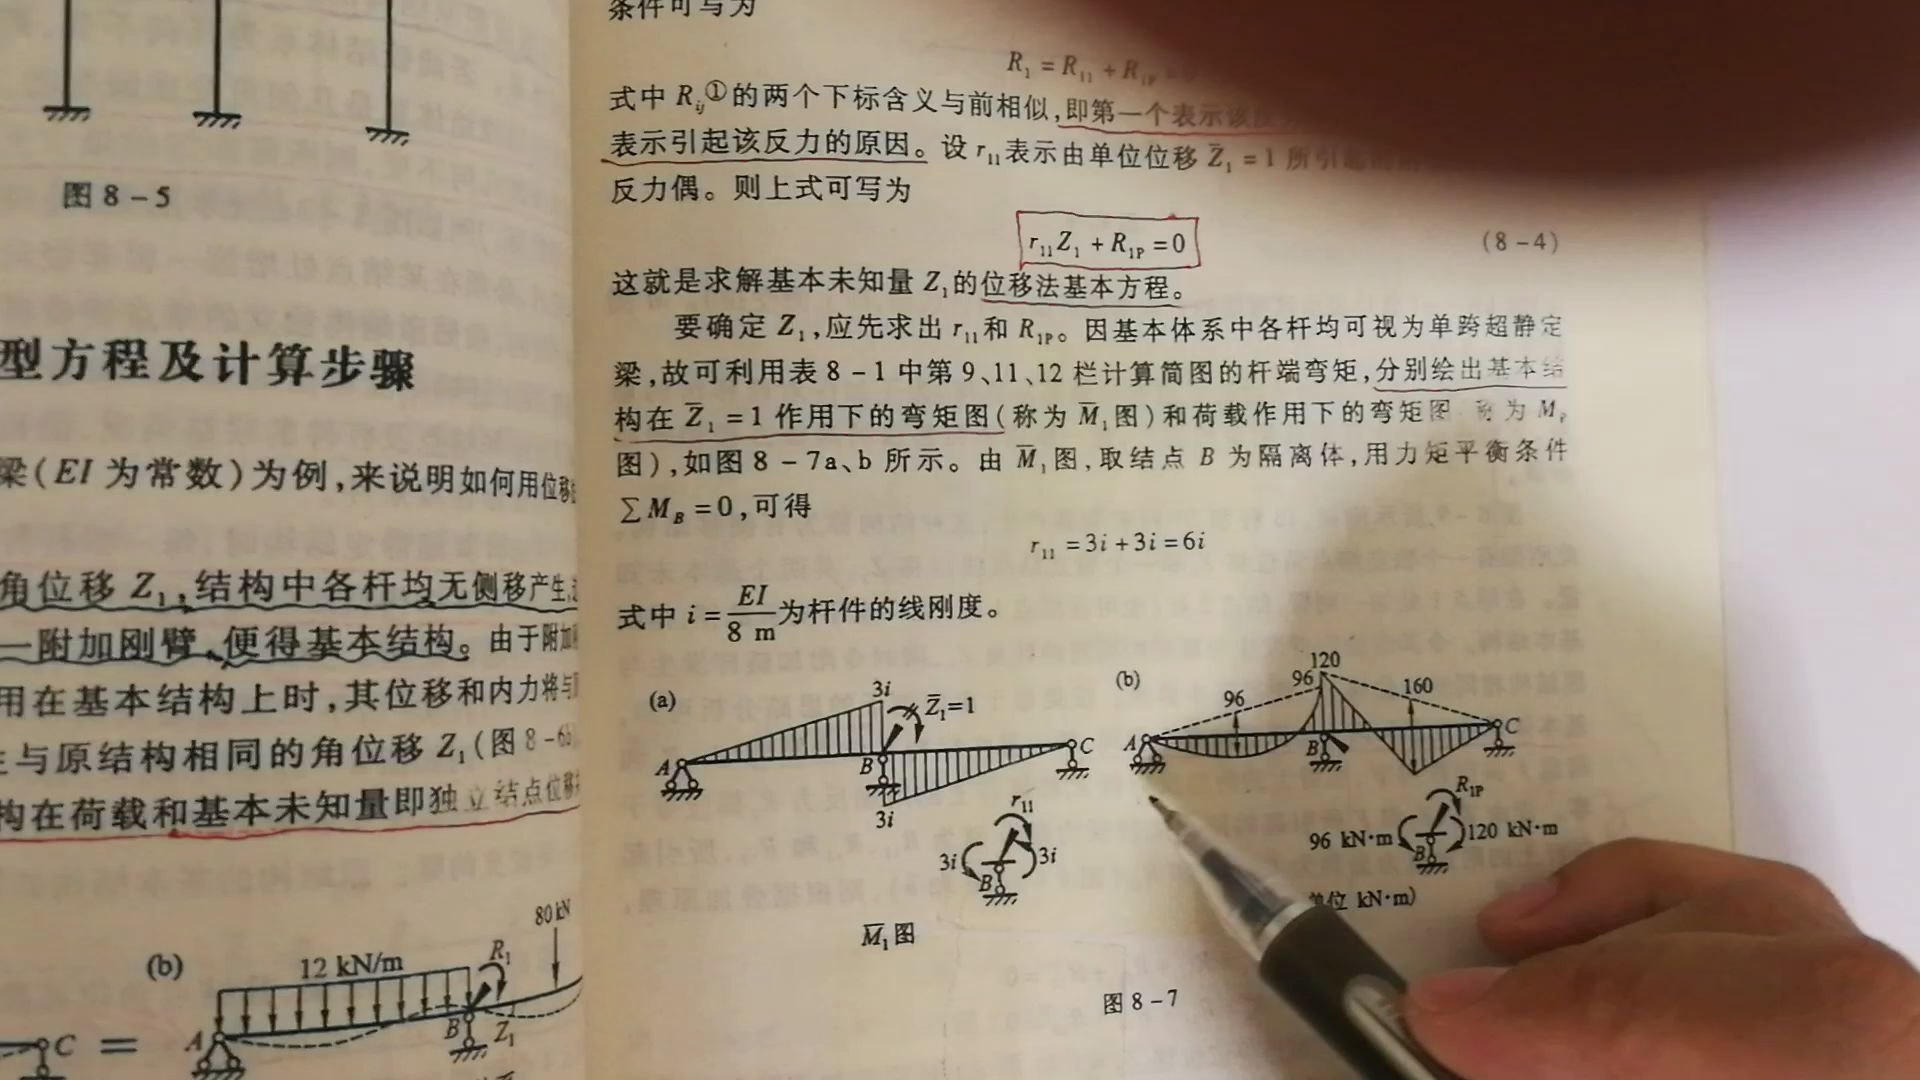 图 8-5
型方程及计算步骤
梁(EI 为常数)为例,来说明如何用位移
角位移 Z₁,结构中各杆均无侧移产生,
一附加刚臂,便得基本结构。由于附加
用在基本结构上时,其位移和内力将与
生与原结构相同的角位移 Z₁(图 8-6b
构在荷载和基本未知量即独立结点位移
(b)
12 kN/m
R₁
80 kN
C = A
B
Z₁
条件可写为
R₁ = R₁₁ + R₁P
式中 Rᵢⱼ①的两个下标含义与前相似,即第一个表示该
表示引起该反力的原因。设 r₁₁表示由单位位移 Z̄₁ = 1 所引起
反力偶。则上式可写为
r₁₁Z₁ + R₁P = 0
(8-4)
这就是求解基本未知量 Z₁的位移法基本方程。
要确定 Z₁,应先求出 r₁₁和 R₁P。因基本体系中各杆均可视为单跨超静定
梁,故可利用表 8-1 中第 9、11、12 栏计算简图的杆端弯矩,分别绘出基本结
构在 Z̄₁ = 1 作用下的弯矩图(称为 M̄₁图)和荷载作用下的弯矩图 称为 MP
图),如图 8-7a、b 所示。由 M̄₁图,取结点 B 为隔离体,用力矩平衡条件
∑MB = 0,可得
r₁₁ = 3i + 3i = 6i
式中 i = EI/8 m 为杆件的线刚度。
(a)
3i
Z̄₁=1
A
B
C
3i
r₁₁
3i
3i
B
M̄₁图
(b)
120
96
96
160
A
B
C
R₁P
96 kN·m
120 kN·m
B
单位 kN·m)
图 8-7